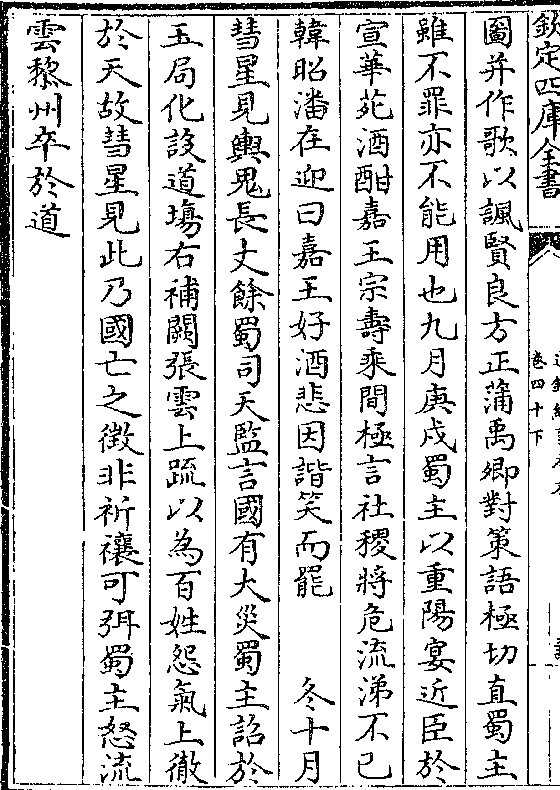 欽定四庫全書
卷四十下
圖并作歌以諷賢良方正蒲禹卿對策語極切直蜀主
雖不罪亦不能用也九月庚戌蜀主以重陽宴近臣於
宣華苑酒酣嘉王宗壽乘間極言社稷將危流涕不已
韓昭潘在迎曰嘉王好酒悲因諧笑而罷　冬十月
彗星見輿鬼長丈餘蜀司天監言國有大災蜀主詔於
玉局化設道場右補闕張雲上疏以為百姓怨氣上徹
於天故彗星見此乃國亡之徵非祈禳可弭蜀主怒流
雲黎州卒於道